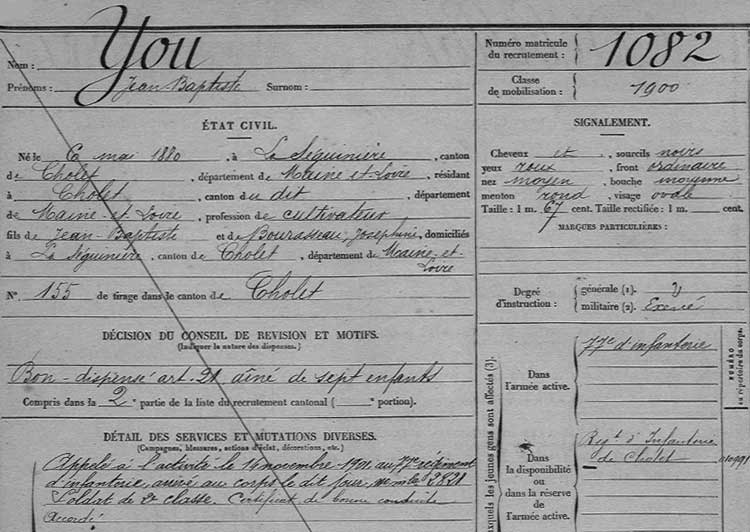 Nom : You
Prénoms : Jean Baptiste Surnom :
ÉTAT CIVIL.
Né le 6 mai 1880, à La Séguinière, canton
de Cholet, département de Maine et Loire, résidant
à Cholet, canton du dit, département
de Maine-et-Loire, profession de cultivateur
fils de Jean-Baptiste et de Bourasseau, Joséphine, domiciliés
à La Séguinière, canton de Cholet, département de Maine-et-
Loire
N° 155 de tirage dans le canton de Cholet
DÉCISION DU CONSEIL DE REVISION ET MOTIFS.
(Indiquer la nature des dispenses.)
Bon - dispensé art. 21 aîné de sept enfants
Compris dans la 2e partie de la liste du recrutement cantonal ( e portion).
DÉTAIL DES SERVICES ET MUTATIONS DIVERSES.
(Campagnes, blessures, actions d'éclat, décorations, etc.)
Appelé à l'activité le 14 novembre 1901 au 77e régiment
d'infanterie, arrivé au corps le dit jour, nº mle 2821
Soldat de 2e classe. Certificat de bonne conduite
Accordé
Numéro matricule
du recrutement : 1082
Classe
de mobilisation : 1900
SIGNALEMENT.
Cheveux et , sourcils noirs
yeux roux , front ordinaire
nez moyen , bouche moyenne
menton rond , visage ovale
Taille : 1 m. 67 cent. Taille rectifiée : 1 m. cent.
MARQUES PARTICULIÈRES :
Degré
d'instruction :
générale (1).
militaire (2). Exercé
Dans
l'armée active.
77e d'infanterie
Dans
la disponibilité
ou
dans la réserve
de
l'armée active.
Régt d'Infanterie
de Cholet
NUMÉRO
au répertoire du corps.
auxquels les jeunes gens sont affectés (3).